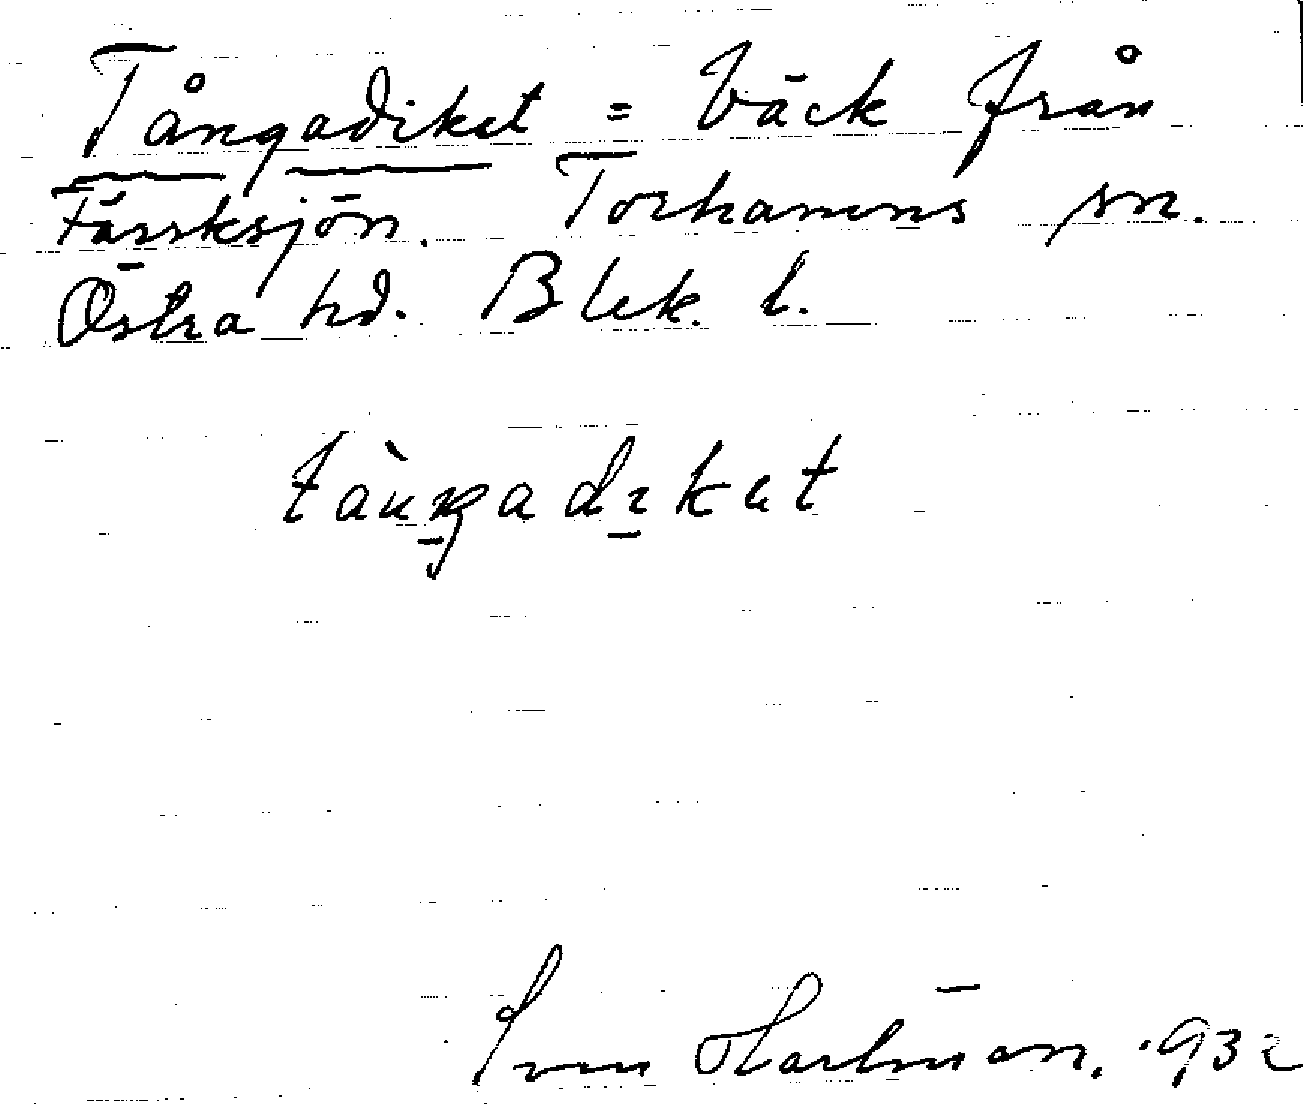 Tångadiket = bäck från
Färsksjön. Torhamns sn.
Östra hd. Blek. l.
tàuŋadıket
Hartman. 1932